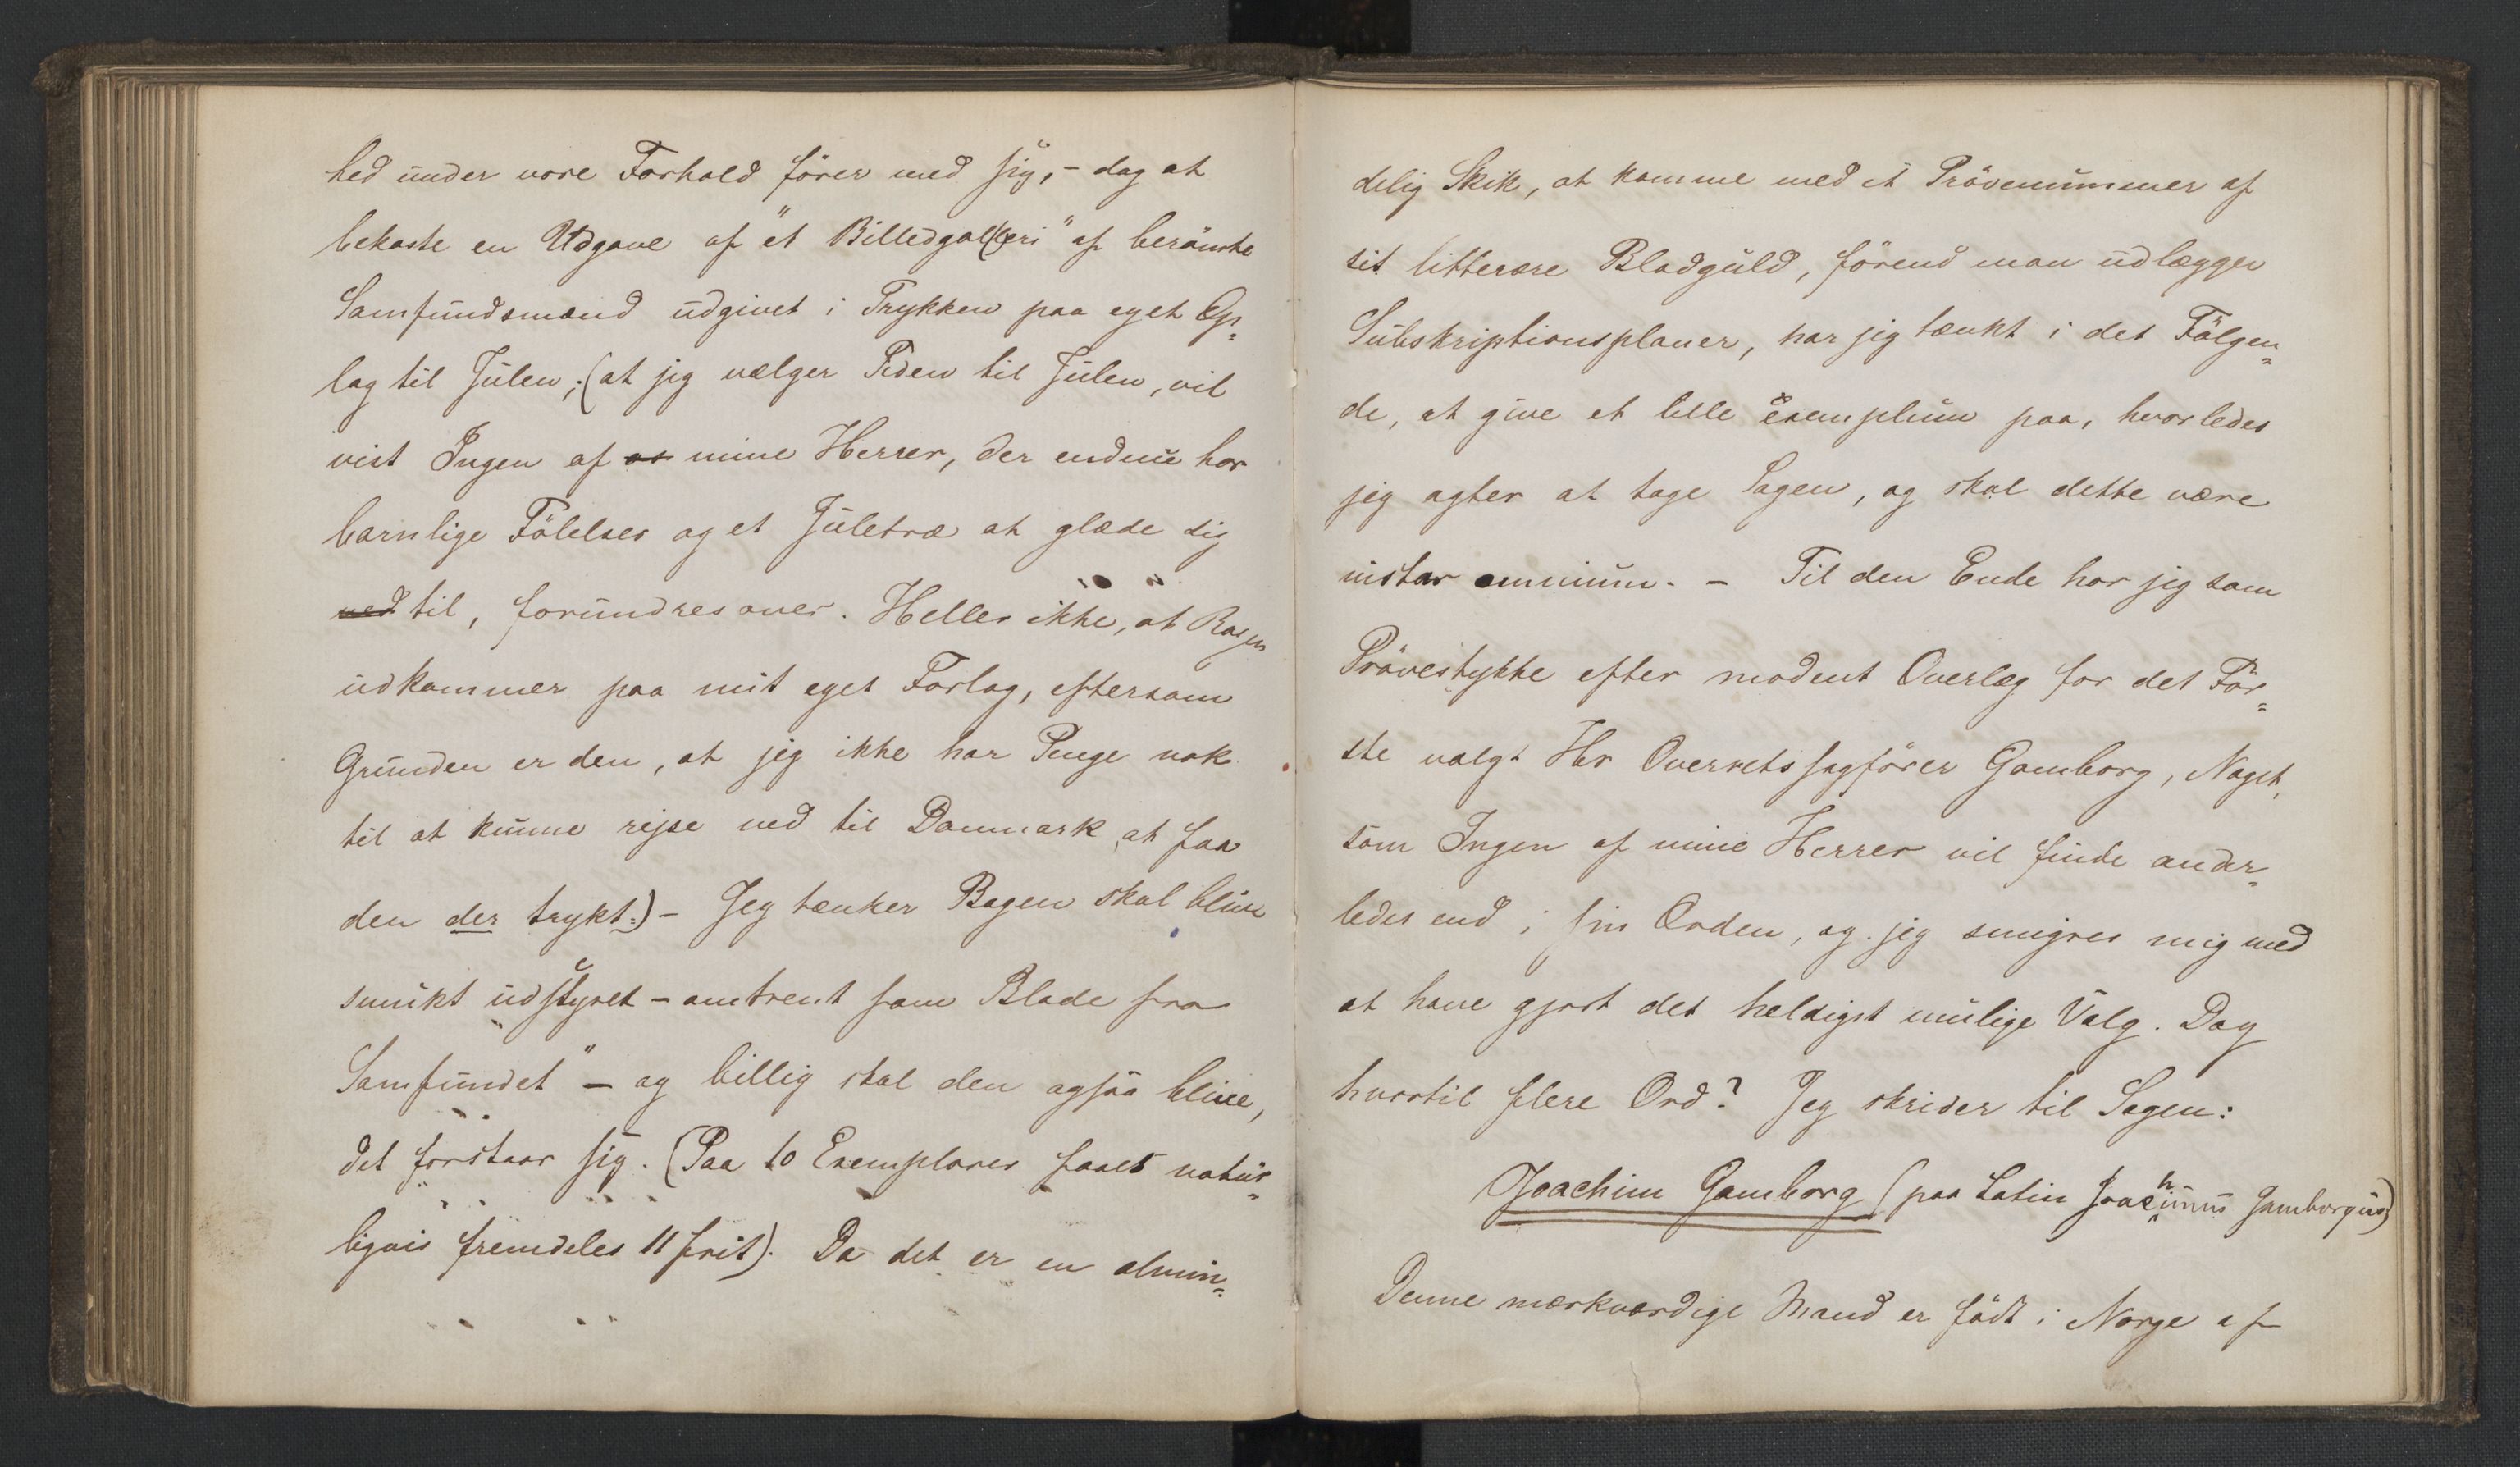 hed under vore Forhold förer med sig, – dog at
bekoste en Udgave af "et Billedgalleri" af berömte
Samfundsmænd udgivet i Trykken paa eget Op=
lag til Julen; (at jeg vælger Tiden til Julen, vil
vist Ingen af os mine Herrer, der endnu har
barnlige Fölelser og et Juletræ at glæde sig
ved til, forundres over. Heller ikke, at Bogen
udkommer paa mit eget Forlag, eftersom
Grunden er den, at jeg ikke har Penge nok
til at kunne rejse ned til Danmark at faa
den der trykt.) – Jeg tænker Bogen skal blive
smukt udstyret – omtrent som Blade fra
Samfundet" – og billig skal den ogsaa blive,
det forstaar sig. (Paa 10 Exemplarer faaes natür=
ligvis fremdeles 11 frit). Da det er en almin=
delig Skik, at komme med et Prövenummer af
sit litterære Bladguld, förend man udlægger
Subskriptionsplaner, har jeg tænkt i det Fölgen=
de, at give et lille exemplum paa, hvorledes
jeg agter at tage Sagen, og skal dette være
instar omnium. – Til den Ende har jeg som
Prövestykke efter modent Overlæg for det För=
ste valgt Hr Overretssagförer Gamborg, Noget,
som Ingen af mine Herrer vil finde ander=
ledes end i sin Orden, og jeg smigrer mig med
at have gjort det heldigst mulige Valg. Dog
hvortil flere Ord? Jeg skrider til Sagen:
Joachim Gamborg (paa Latin Joachimus Gamborgius)
Denne mærkværdige Mand er födt i Norge af